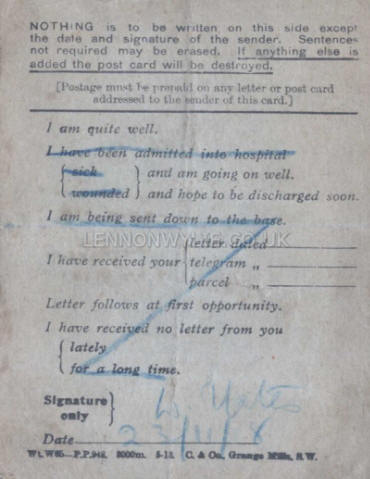 NOTHING is to be written on this side except
the date and signature of the sender. Sentences
not required may be erased. If anything else is
added the post card will be destroyed.
[Postage must be prepaid on any letter or post card
addressed to the sender of this card.]
I am quite well.
I have been admitted into hospital
sick } and am going on well.
wounded } and hope to be discharged soon.
I am being sent down to the base.
LENNONWYLIE.CO.UK
letter dated
I have received your { telegram „
parcel „
Letter follows at first opportunity.
I have received no letter from you
{ lately
for a long time.
Signature
only }
Yates
Date 23/11/
Wt. W65—P.P.948. 8000m. 5-18. C. & Co., Grange Mills, S.W.